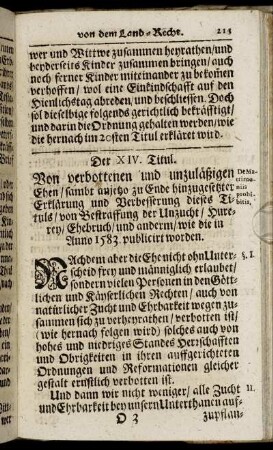 von dem Land-Recht. 213
wer und Wittwe zusammen heyrathen/und
beyderseits Kinder zusammen bringen/auch
noch ferner Kinder miteinander zu bekommen
verhoffen/ wol eine Einkindschafft auf den
Hienlichstag abreden, und beschliessen. Doch
sol dieselbige folgends gerichtlich bekräfftiget/
und darin die Ordnung gehalten werden/wie
die hernach im 20sten Titul erkläret wird.
Der XIV. Titul.
Von verbottenen und unzuläßigen
Ehen/ sambt anjetzo zu Ende hinzugesetzter
Erklärung und Verbesserung dieses Ti-
tuls/ von Bestraffung der Unzucht/ Hure-
rey/Ehebruch/ und anderm/ wie die in
Anno 1583. publicirt worden.
De Ma-
trimo-
niis
prohi-
bitis.
NAchdem aber die Ehe nicht ohn Unter-
scheid frey und männiglich erlaubet/
sondern vielen Personen in den Gött-
lichen und Käyserlichen Rechten/ auch von
natürlicher Zucht und Ehrbarkeit wegen zu-
sammen sich zu verheyrathen/ verbotten ist/
(wie hernach folgen wird) solches auch von
hohes und niedriges Standes Herrschafften
und Obrigkeiten in ihren auffgerichteten
Ordnungen und Reformationen gleicher
gestalt ernstlich verbotten ist.
§. 1.
Und dann wir nicht weniger/ alle Zucht
und Ehrbarkeit bey unsern Unterthanen auf-
11.
D 3 zupflan-